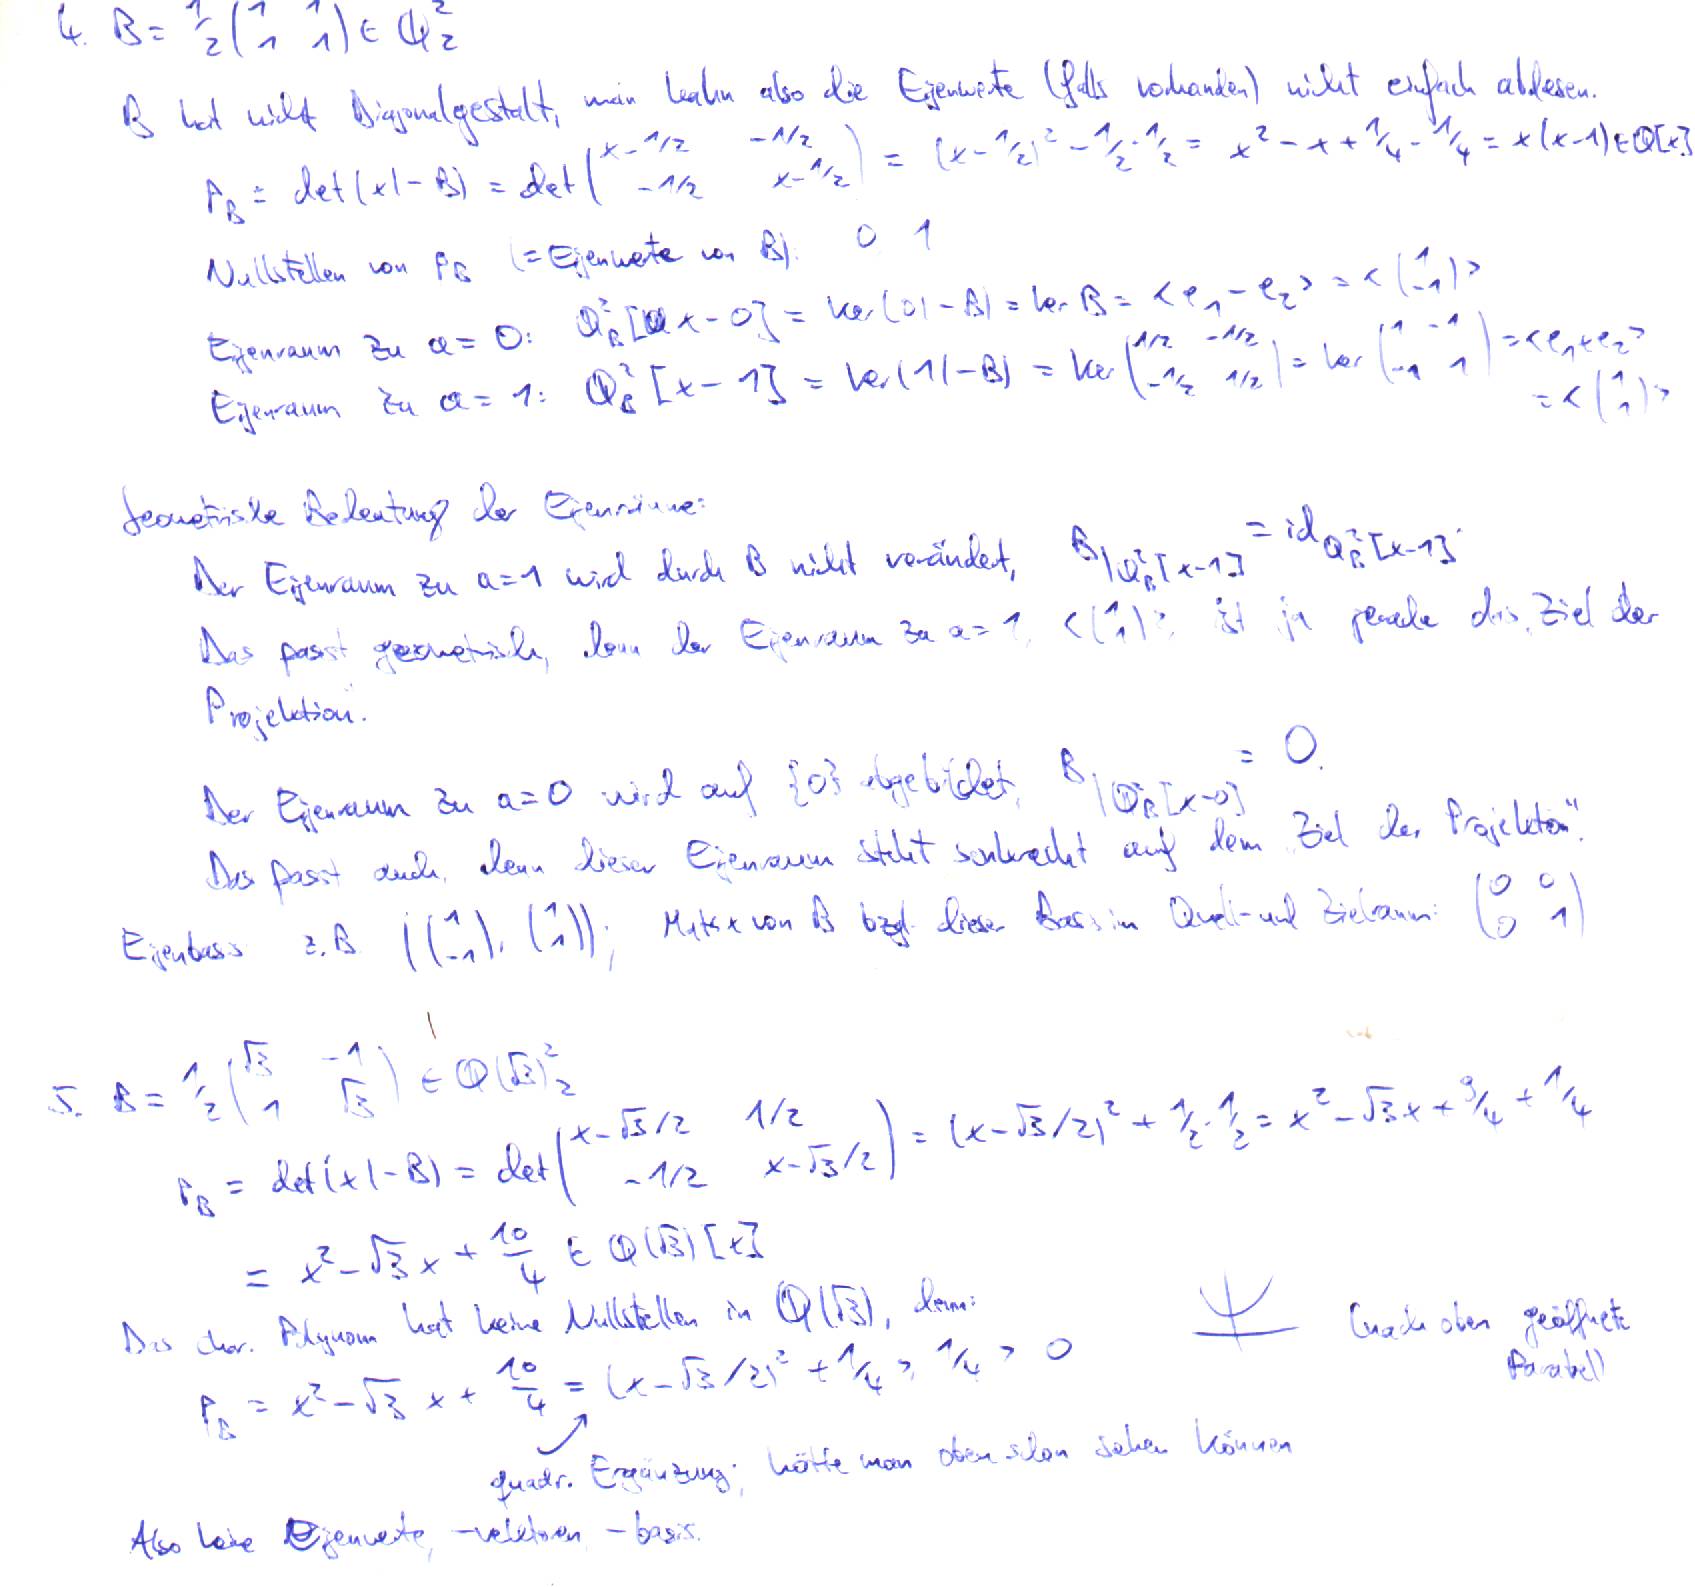 4. B = 1/2 (1 1; 1 1) ∈ ℚ²₂
B hat nicht Diagonalgestalt, man kahn also die Eigenwerte (falls vorhanden) nicht einfach ablesen.
P_B = det(x1-B) = det (x-1/2 -1/2; -1/2 x-1/2) = (x-1/2)² - 1/2·1/2 = x² - x + 1/4 - 1/4 = x(x-1) ∈ ℚ[x]
Nullstellen von P_B (= Eigenwerte von B): 0 1
Eigenraum zu a = 0: ℚ²_B[x-0] = ker(01-B) = ker B = <e₁-e₂> = <(1; -1)>
Eigenraum zu a = 1: ℚ²_B[x-1] = ker(11-B) = ker (1/2 -1/2; -1/2 1/2) = ker (1 -1; -1 1) = <e₁+e₂>
= <(1; 1)>
Geometrische Bedeutung der Eigenräume:
Der Eigenraum zu a=1 wird durch B nicht verändert, B|ℚ²_B[x-1] = id ℚ²_B[x-1].
Das passt geometrisch, denn der Eigenraum zu a=1, <(1; 1)>, ist ja gerade das „Ziel der
Projektion".
Der Eigenraum zu a=0 wird auf {0} abgebildet, B|ℚ²_B[x-0] = 0.
Das passt auch, denn dieser Eigenraum steht senkrecht auf dem „Ziel der Projektion".
Eigenbasis z.B. ((1; -1), (1; 1)); Matrix von B bzgl. dieser Basis im Quell- und Zielraum: (0 0; 0 1)
5. B = 1/2 (√3 -1; 1 √3) ∈ ℚ(√3)²₂
P_B = det(x1-B) = det (x-√3/2 1/2; -1/2 x-√3/2) = (x-√3/2)² + 1/2·1/2 = x² - √3x + 9/4 + 1/4
= x² - √3x + 10/4 ∈ ℚ(√3)[x]
Das char. Polynom hat keine Nullstellen in ℚ(√3), denn:
P_B = x² - √3 x + 10/4 = (x-√3/2)² + 1/4 > 1/4 > 0
(nach oben geöffnete
Parabel)
quadr. Ergänzung; hätte man oben schon sehen können
Also keine Eigenwerte, -vektoren, -basis.